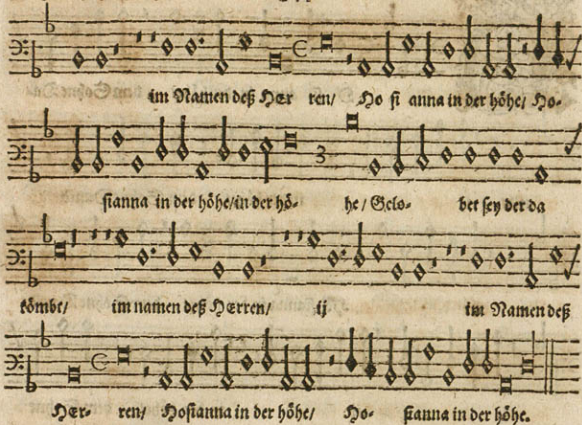 im Namen deß Her ren/ Ho si anna in der höhe/ Ho-
3
sianna in der höhe/in der hö- he/ Gelo- bet sey der da
kömbt/ im namen deß Herren/ ij im Namen deß
Her- ren/ Hosianna in der höhe/ Ho- sianna in der höhe.